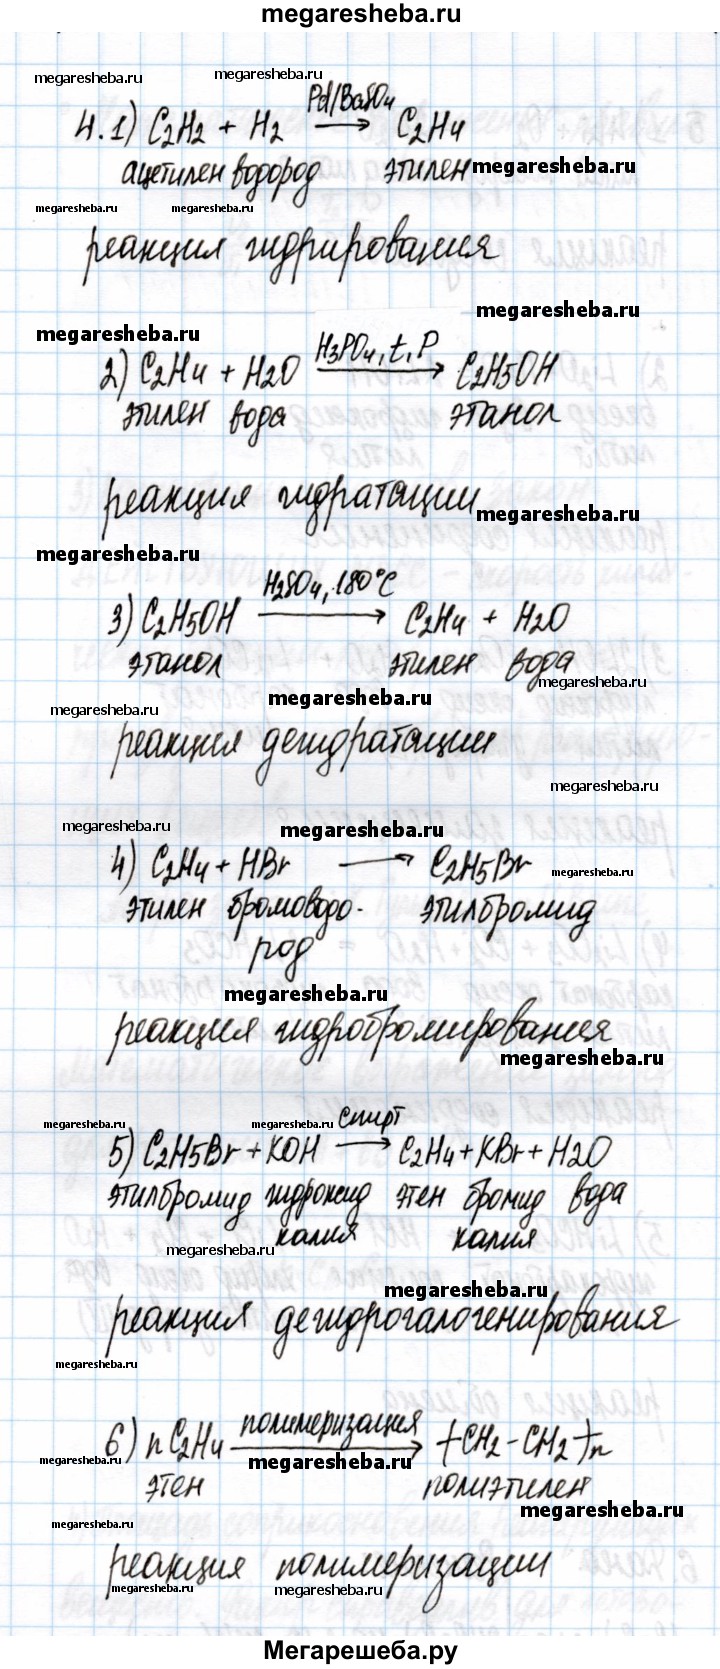 megaresheba.ru
megaresheba.ru megaresheba.ru
Pd/BaSO4
4.1) C2H2 + H2 → C2H4
ацетилен водород этилен megaresheba.ru
megaresheba.ru megaresheba.ru
реакция гидрирования
megaresheba.ru
megaresheba.ru
H3PO4, t, P
2) C2H4 + H2O → C2H5OH
этилен вода этанол
реакция гидратации
megaresheba.ru
megaresheba.ru
H2SO4, 180°C
3) C2H5OH → C2H4 + H2O
этанол этилен вода
megaresheba.ru
megaresheba.ru
megaresheba.ru
реакция дегидратации
megaresheba.ru
megaresheba.ru
megaresheba.ru
4) C2H4 + HBr → C2H5Br
megaresheba.ru
этилен бромоводо- этилбромид
род
megaresheba.ru
реакция гидробромирования
megaresheba.ru
megaresheba.ru megaresheba.ru
спирт
5) C2H5Br + KOH → C2H4 + KBr + H2O
этилбромид гидроксид этен бромид вода
калия калия
megaresheba.ru
megaresheba.ru
реакция дегидрогалогенирования
megaresheba.ru
полимеризация
6) nC2H4 → (CH2-CH2)n
megaresheba.ru megaresheba.ru
этен полиэтилен
megaresheba.ru
megaresheba.ru
реакция полимеризации
megaresheba.ru megaresheba.ru
Мегарешеба.ру